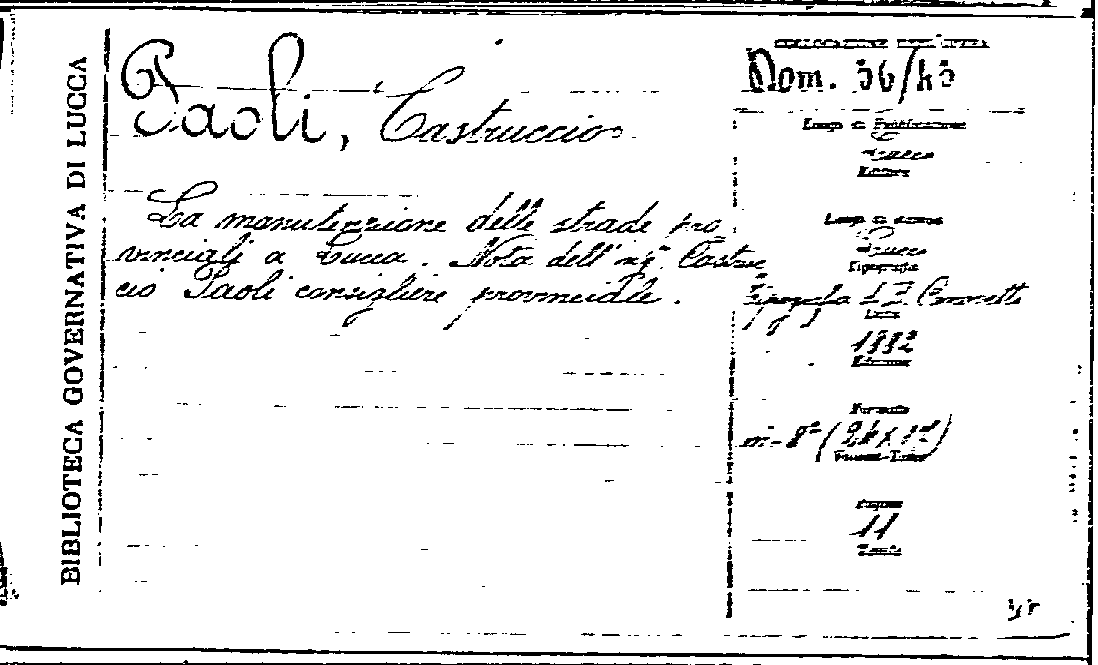 BIBLIOTECA GOVERNATIVA DI LUCCA
Paoli, Castruccio
La manutenzione delle strade pro
vinciali a Lucca. Nota dell'ing. Castruc
cio Paoli consigliere provinciale.
Dom. 56/
Luogo di Pubblicazione
Lucca
Editore
Luogo di stampa
Lucca
Tipografia
Tipografia
Data
1882
Edizione
Formato
in-8° (24 x
Pagine
11
Tavole